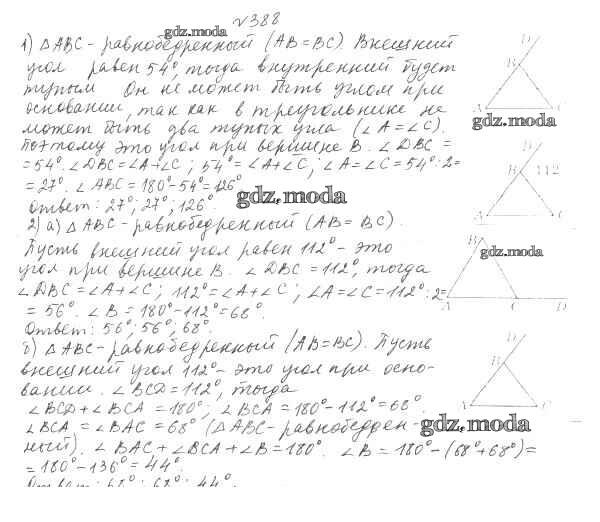 №388
gdz.moda
1) △ABC - равнобедренный (AB=BC). Внешний
угол равен 54°, тогда внутренний будет
тупым. Он не может быть углом при
основании, так как в треугольнике не
может быть два тупых угла (∠A=∠C).
Поэтому это угол при вершине B. ∠DBC =
= 54°. ∠DBC=∠A+∠C; 54°=∠A+∠C; ∠A=∠C=54°:2=
= 27°. ∠ABC = 180°-54°=126°
Ответ: 27°; 27°; 126°
gdz.moda
2) а) △ABC - равнобедренный (AB = BC).
Пусть внешний угол равен 112° - это
угол при вершине B. ∠DBC = 112°, тогда
∠DBC = ∠A+∠C; 112°=∠A+∠C; ∠A=∠C=112°:2=
= 56°. ∠B = 180°-112°=68°.
Ответ: 56°; 56°; 68°.
б) △ABC - равнобедренный (AB=BC). Пусть
внешний угол 112° - это угол при осно-
вании. ∠BCD = 112°, тогда
∠BCD+∠BCA = 180°; ∠BCA = 180°-112°=68°.
∠BCA = ∠BAC = 68° (△ABC - равнобедрен-
ный). ∠BAC+∠BCA+∠B = 180°. ∠B = 180°-(68°+68°)=
= 180°-136°=44°.
Ответ: 68°; 68°; 44°.
D
B
A C
gdz.moda
D
B 112
A C
B
gdz.moda
A C D
D
B
A C
gdz.moda